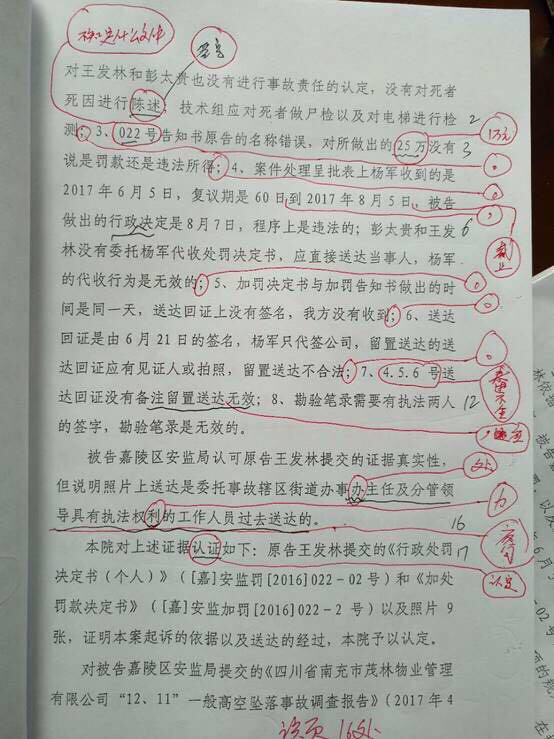 对王发林和彭太贵也没有进行事故责任的认定，没有对死者
死因进行陈述，技术组应对死者做尸检以及对电梯进行检 2
测；3、022号告知书原告的名称错误，对所做出的25万没有 3
说是罚款还是违法所得；4、案件处理呈批表上杨军收到的是
2017年6月5日，复议期是60日到2017年8月5日，被告
做出的行政决定是8月7日，程序上是违法的；彭太贵和王发 6
林没有委托杨军代收处罚决定书，应直接送达当事人，杨军
的代收行为是无效的；5、加罚决定书与加罚告知书做出的时
间是同一天，送达回证上没有签名，我方没有收到；6、送达
回证是由6月21日的签名，杨军只代签公司，留置送达的送
达回证应有见证人或拍照，留置送达不合法；7、4.5.6号送
达回证没有备注留置送达无效；8、勘验笔录需要有执法两人 12
的签字，勘验笔录是无效的。
被告嘉陵区安监局认可原告王发林提交的证据真实性，
但说明照片上送达是委托事故辖区街道办事办主任及分管领
导具有执法权利的工作人员过去送达的。 16
本院对上述证据认证如下：原告王发林提交的《行政处罚 17
决定书（个人）》（[嘉]安监罚[2016]022-02号）和《加处
罚款决定书》（[嘉]安监加罚[2016]022-2号）以及照片9
张，证明本案起诉的依据以及送达的经过，本院予以认定。
对被告嘉陵区安监局提交的《四川省南充市茂林物业管理
有限公司“12、11”一般高空坠落事故调查报告》（2017年4
万元
处
力
认定
该页16处